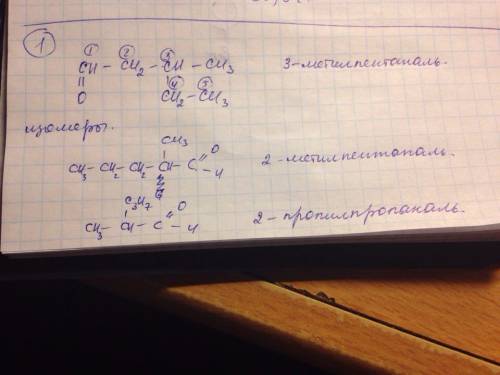 1
① ② ③
CH - CH2 - CH - CH3 3-метилпентаналь.
|| |
O CH2 - CH3
④ ⑤
изомеры.
CH3
|
CH3 - CH2 - CH2 - CH - C = O - H 2-метилпентаналь.
C3H7
|
CH3 - CH - C = O - H 2-пропилпропаналь.